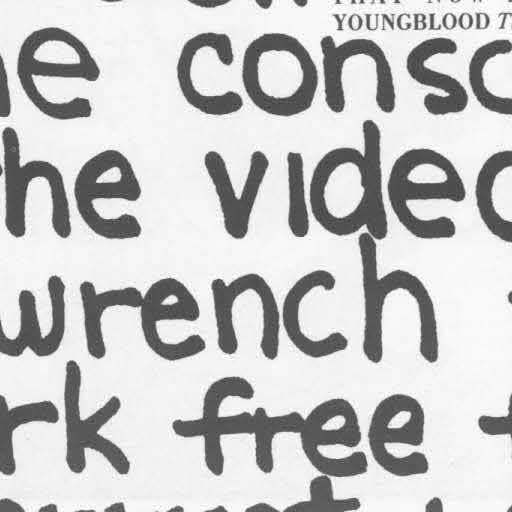 THAT NOW
YOUNGBLOOD T
he consc
the video
wrench
rk free f